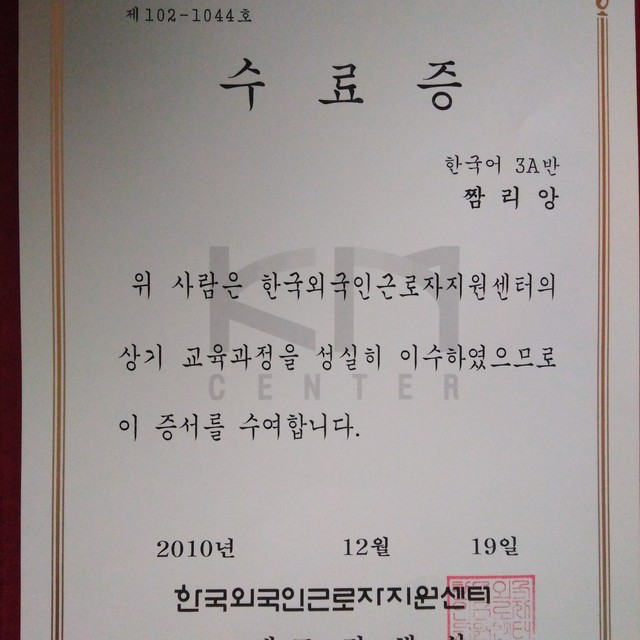 제102-1044호
수 료 증
한국어 3A반
짬 리 앙
KM
CENTER
위 사람은 한국외국인근로자지원센터의
상기 교육과정을 성실히 이수하였으므로
이 증서를 수여합니다.
2010년 12월 19일
한국외국인근로자지원센터